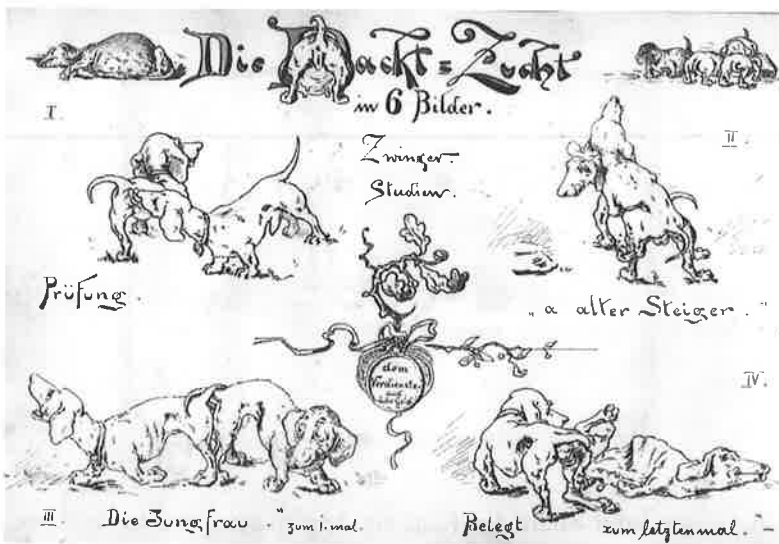 Die Dackl=Zucht
in 6 Bilder.
I.
II
Zwinger.
Studien.
Prüfung.
„a alter Steiger."
dem
Verdienste
IV.
III. Die Jungfrau " zum 1. mal.
Belegt zum letztenmal."